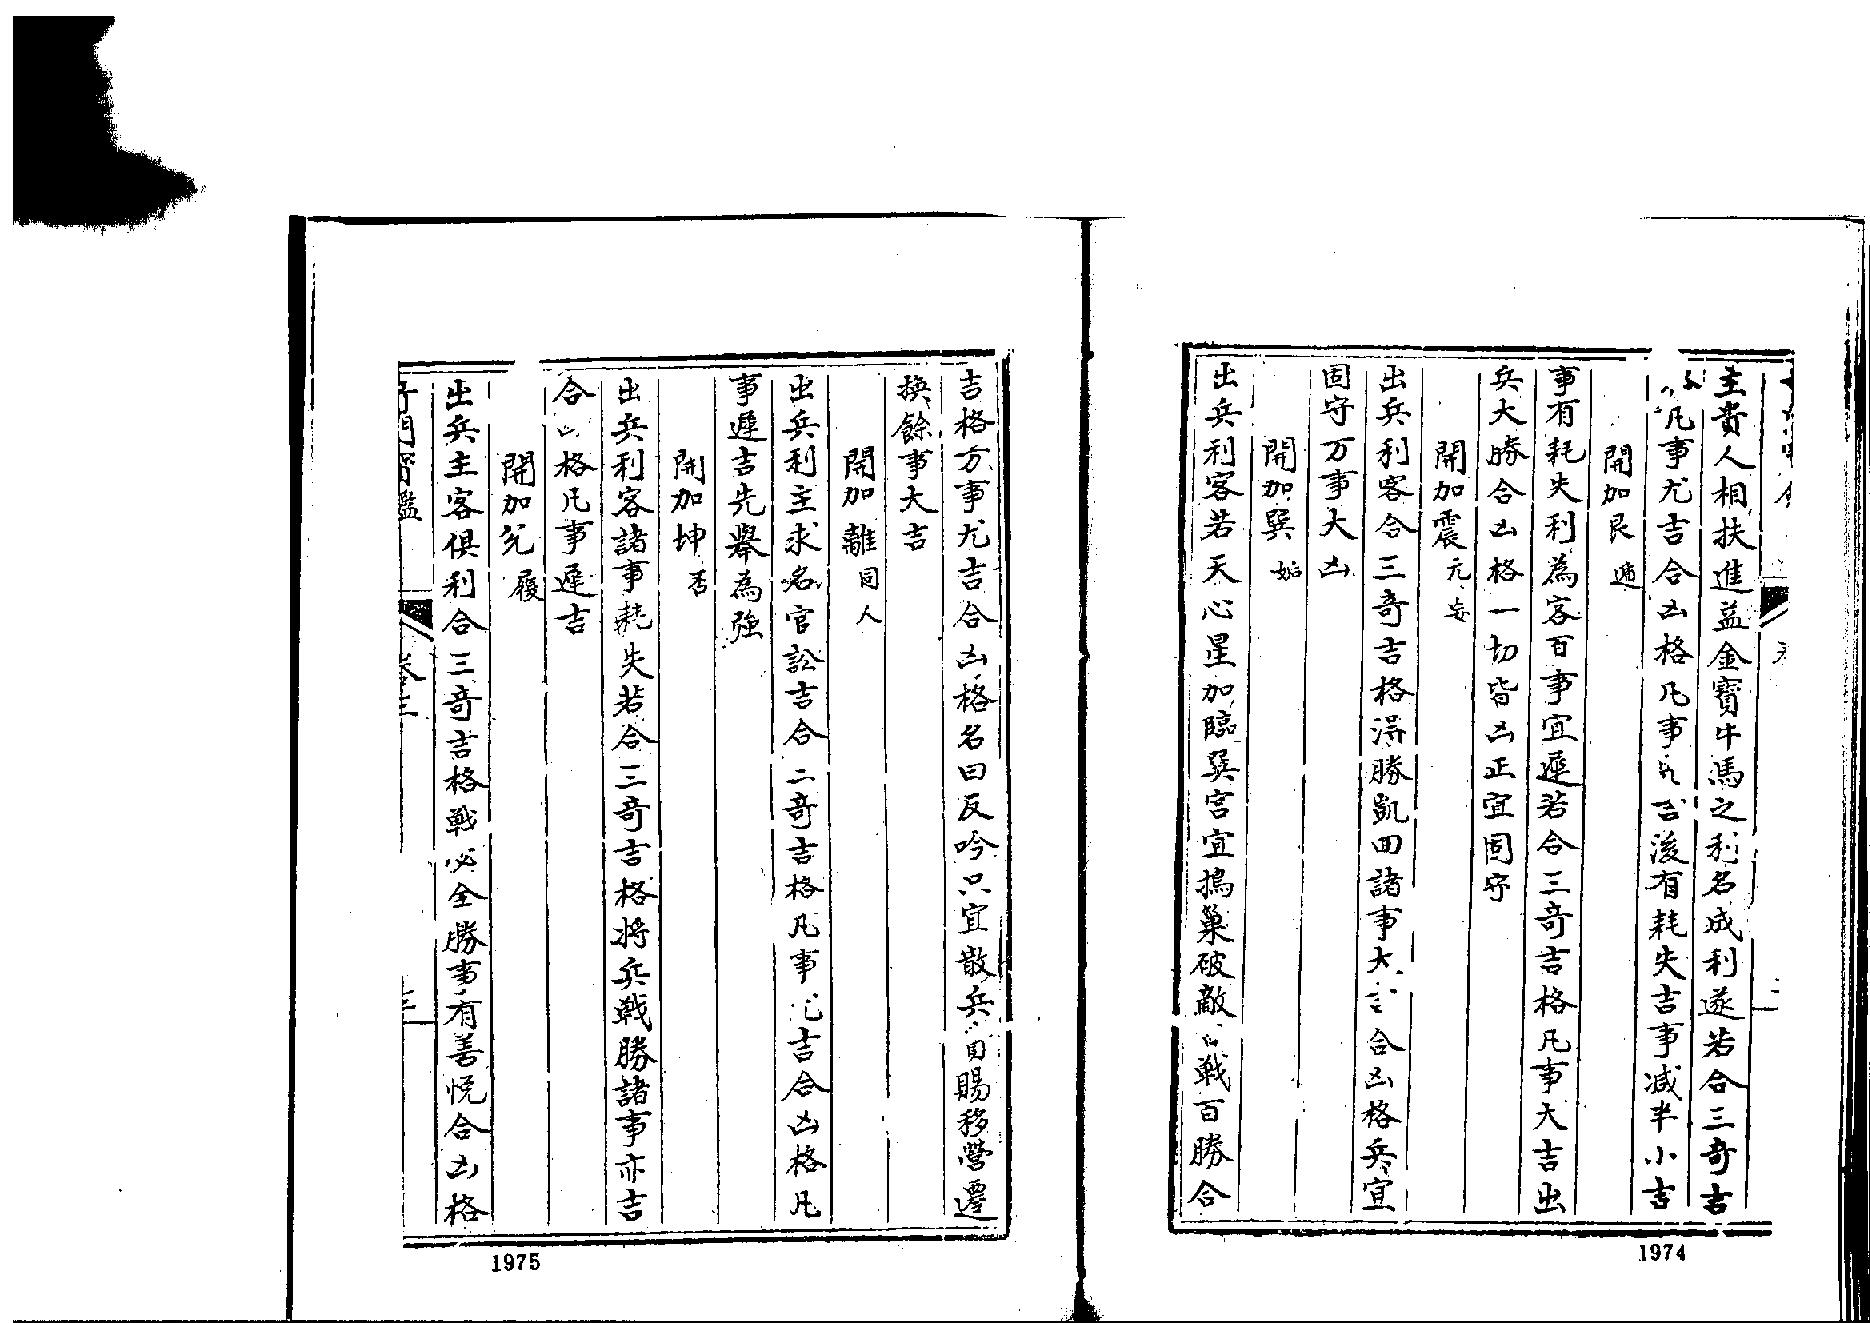 主貴人相扶進益金寶牛馬之利名成利遂若合三奇吉
凡事尤吉合凶格凡事後有耗失吉事減半小吉
開加艮 遯
事有耗失利為客百事宜遲若合三奇吉格凡事大吉出
兵大勝合凶格一切皆凶正宜固守
開加震 无妄
出兵利客合三奇吉格得勝凱回諸事大吉合凶格兵宜
固守万事大凶
開加巽 姤
出兵利客若天心星加臨巽宮宜搗巢破敵戰百勝合
1974
吉格万事尤吉合凶格名曰反吟只宜散兵賜移營遷
換餘事大吉
開加離 同人
出兵利主求名官訟吉合三奇吉格凡事尤吉合凶格凡
事遲吉先舉為強
開加坤 否
出兵利客諸事耗失若合三奇吉格将兵戰勝諸事亦吉
合凶格凡事遲吉
開加兌 履
出兵主客俱利合三奇吉格戰必全勝事有善悅合凶格
奇門寶鑑 卷三
1975